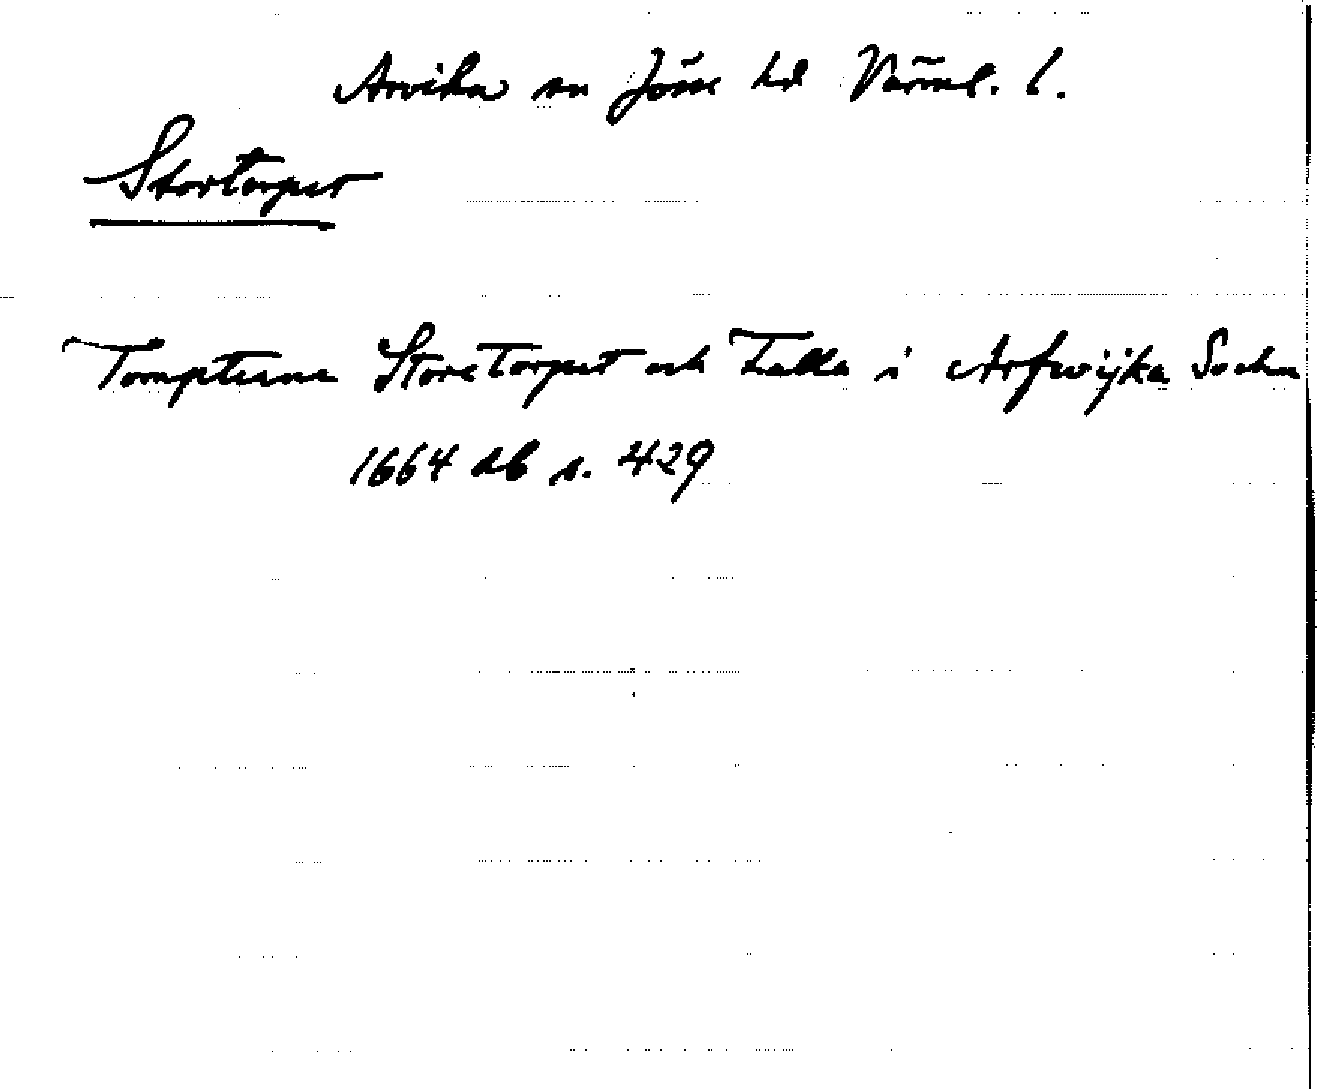 Arvika sn Jösse hd Värml. l.
Stortorpet
Tompterne Storetorpet och Talla i Arfwijka Sochn
1664 db s. 429